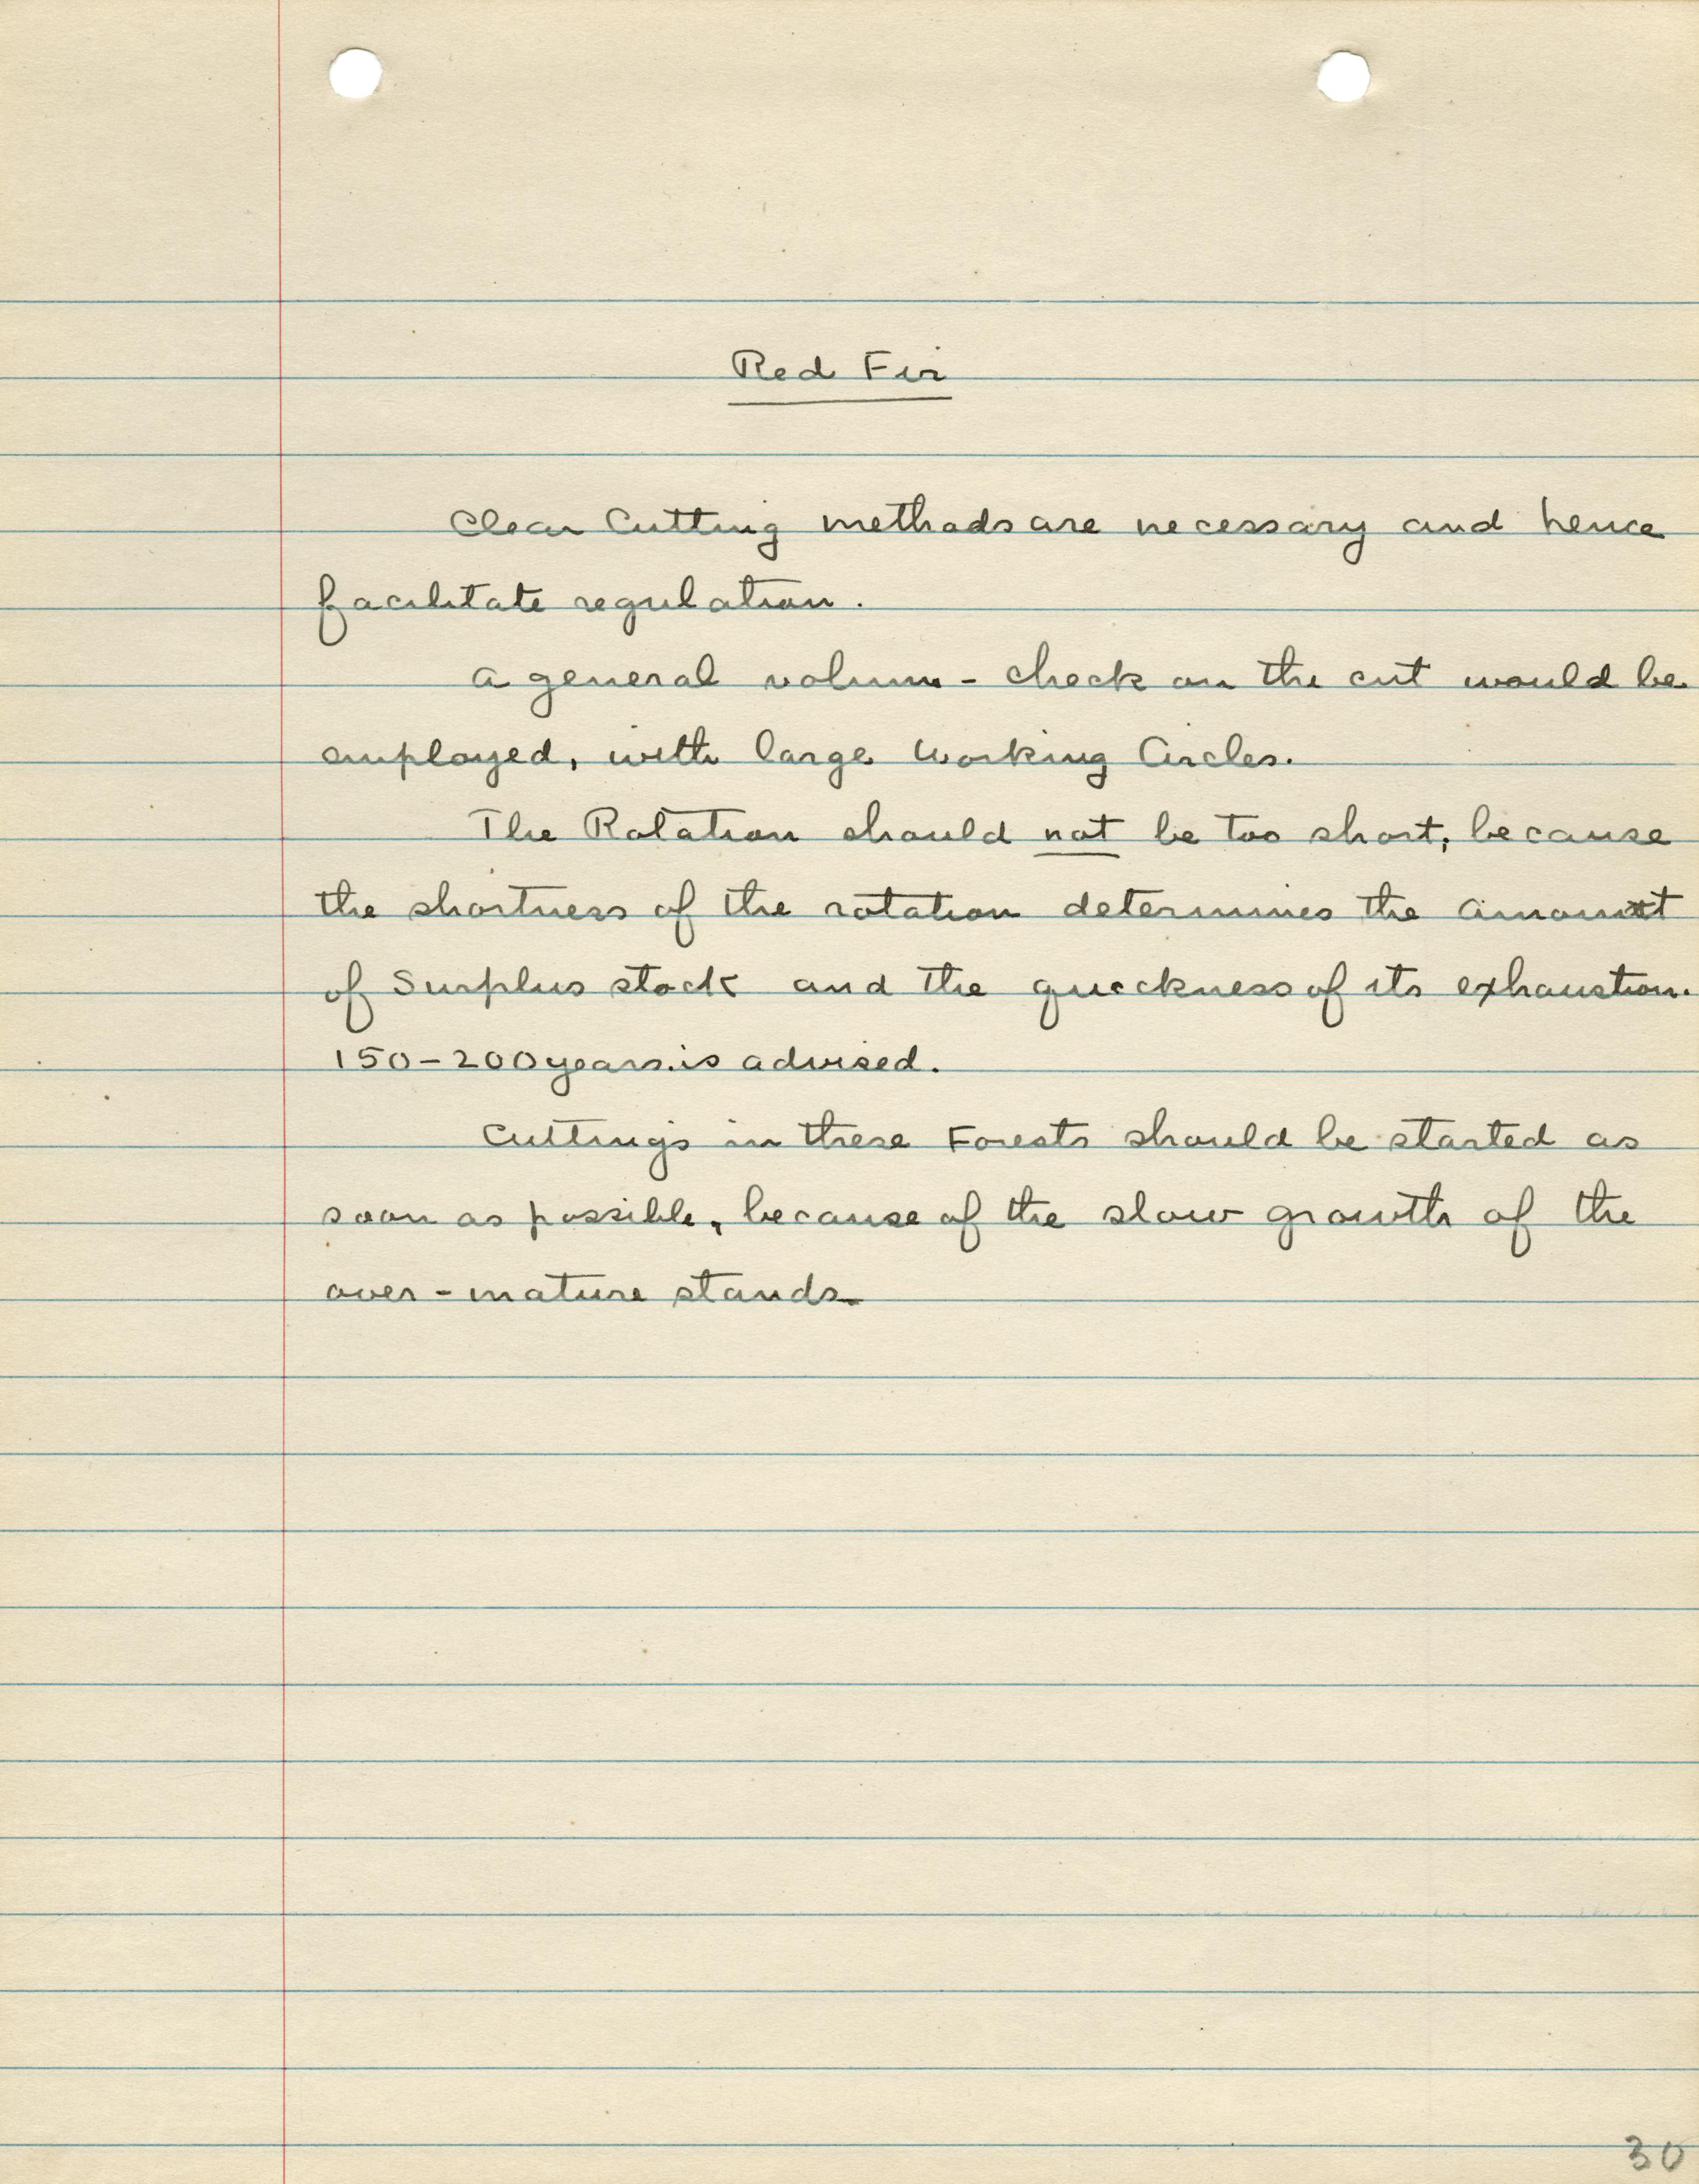 Red Fir
Clear Cutting methods are necessary and hence
facilitate regulation.
A general volume - check on the cut would be
employed, with large Working Circles.
The Rotation should not be too short, because
the shortness of the rotation determines the amount
of Surplus stock and the quickness of its exhaustion.
150-200 years is advised.
Cuttings in these Forests should be started as
soon as possible, because of the slow growth of the
over-mature stands.
30